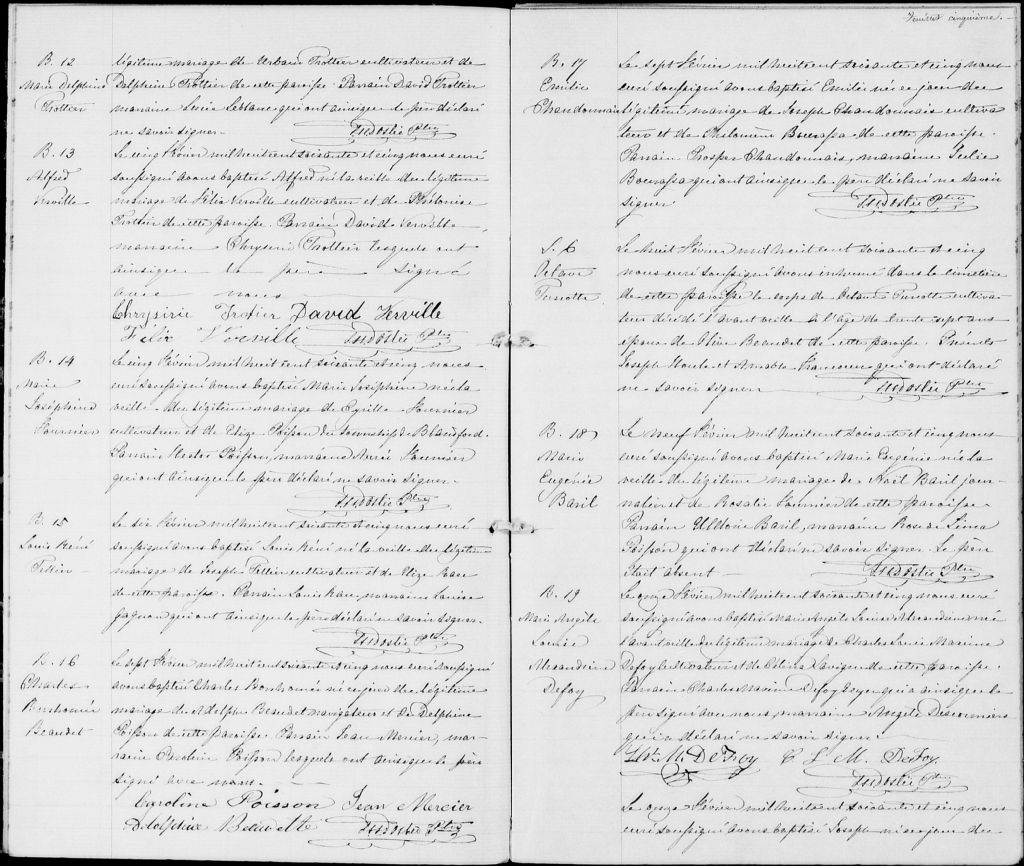 B. 12
Marie Delphine
Trottier
légitime mariage de Urbain Trottier cultivateur et de
Delphine Trottier de cette paroisse. Parrain David Trottier
marraine Lucie Leblanc qui ont ainsi que le père déclaré
ne savoir signer.
Ptre
B. 13
Alfred
Verville
Le cinq Février mil huit cent soixante et cinq nous curé
soussigné avons baptisé Alfred né la veille du légitime
mariage de Félix Verville cultivateur et de Philonise
Trottier de cette paroisse. Parrain David Verville,
marraine Chrysirie Trottier lesquels ont
ainsi que le père signé
avec nous
Chrysirie Trotier David Verville
Félix Verville Ptre
B. 14
Marie
Joséphine
Fournier
Le cinq Février mil huit cent soixante et cinq nous
curé soussigné avons baptisé Marie Joséphine née la
veille du légitime mariage de Cyrille Fournier
cultivateur et de Elize Poisson du township de Blandford.
Parrain Hector Poisson, marraine Fournier
qui ont ainsi que le père déclaré ne savoir signer.
Ptre
B. 15
Louis Réné
Tellier
Le six Février mil huit cent soixante et cinq nous curé
soussigné avons baptisé Louis Réné né la veille du légitime
mariage de Joseph Tellier cultivateur et de Elize
de cette paroisse. Parrain Louis marraine Louise
Gagnon qui ont ainsi que le père déclaré ne savoir signer.
Ptre
B. 16
Charles
Bonhomée
Beaudet
Le sept Février mil huit cent soixante et cinq nous curé soussigné
avons baptisé Charles Bonhomée né ce jour du légitime
mariage de Adolphe Beaudet navigateur et de Delphine
Poisson de cette paroisse. Parrain Jean Mercier, mar-
raine Caroline Poisson lesquels ont ainsi que le père
signé avec nous.
Caroline Poisson Jean Mercier
Adolphe Ptre
Feuillet cinquième.
B. 17
Emilie
Chandonnais
Le sept Février mil huit cent soixante et cinq nous
curé soussigné avons baptisé Emilie née ce jour du
légitime mariage de Joseph Chandonnais cultiva-
teur et de Philomène Bourassa de cette paroisse.
Parrain Prosper Chandonnais, marraine Julie
Bourassa qui ont ainsi que le père déclaré ne savoir
signer
Ptre
S. 6
Octave
Turcotte
Le huit Février mil huit cent soixante et cinq
nous curé soussigné avons inhumé dans le cimetière
de cette paroisse le corps de Octave Turcotte cultiva-
teur décédé l'avant veille à l'âge de trente sept ans
époux de Olive Beaudet de cette paroisse. Présents
Joseph Houle et Amable qui ont déclaré
ne savoir signer
Ptre
B. 18
Marie
Eugénie
Baril
Le neuf Février mil huit cent soixante et cinq nous
curé soussigné avons baptisé Marie Eugénie née la
veille du légitime mariage de Noël Baril jour-
nalier et de Rosalie Fournier de cette paroisse.
Parrain Uldoric Baril, marraine Rose de Lima
Poisson qui ont déclaré ne savoir signer. Le père
était absent
Ptre
B. 19
Marie Angèle
Louise
Alexandrine
Defoy
Le onze Février mil huit cent soixante et cinq nous curé
soussigné avons baptisé Marie Angèle Louise Alexandrine née
l'avant veille du légitime mariage de Charles Louis Maxime
Defoy cultivateur et de Célina Lavigne de cette paroisse.
Parrain Charles Maxime Defoy Ecuyer qui a ainsi que le
père signé avec nous, marraine Angèle Descormiers
qui a déclaré ne savoir signer
M. DeFoy C L M. DeFoy
Ptre
Le onze Février mil huit cent soixante et cinq nous
curé soussigné avons baptisé Joseph né ce jour du